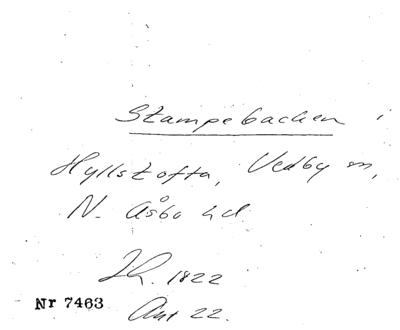 Stampebacken i
Hyllstofta, Vedby sn,
N. Åsbo hd
1822
Nr 7463
Ant 22.